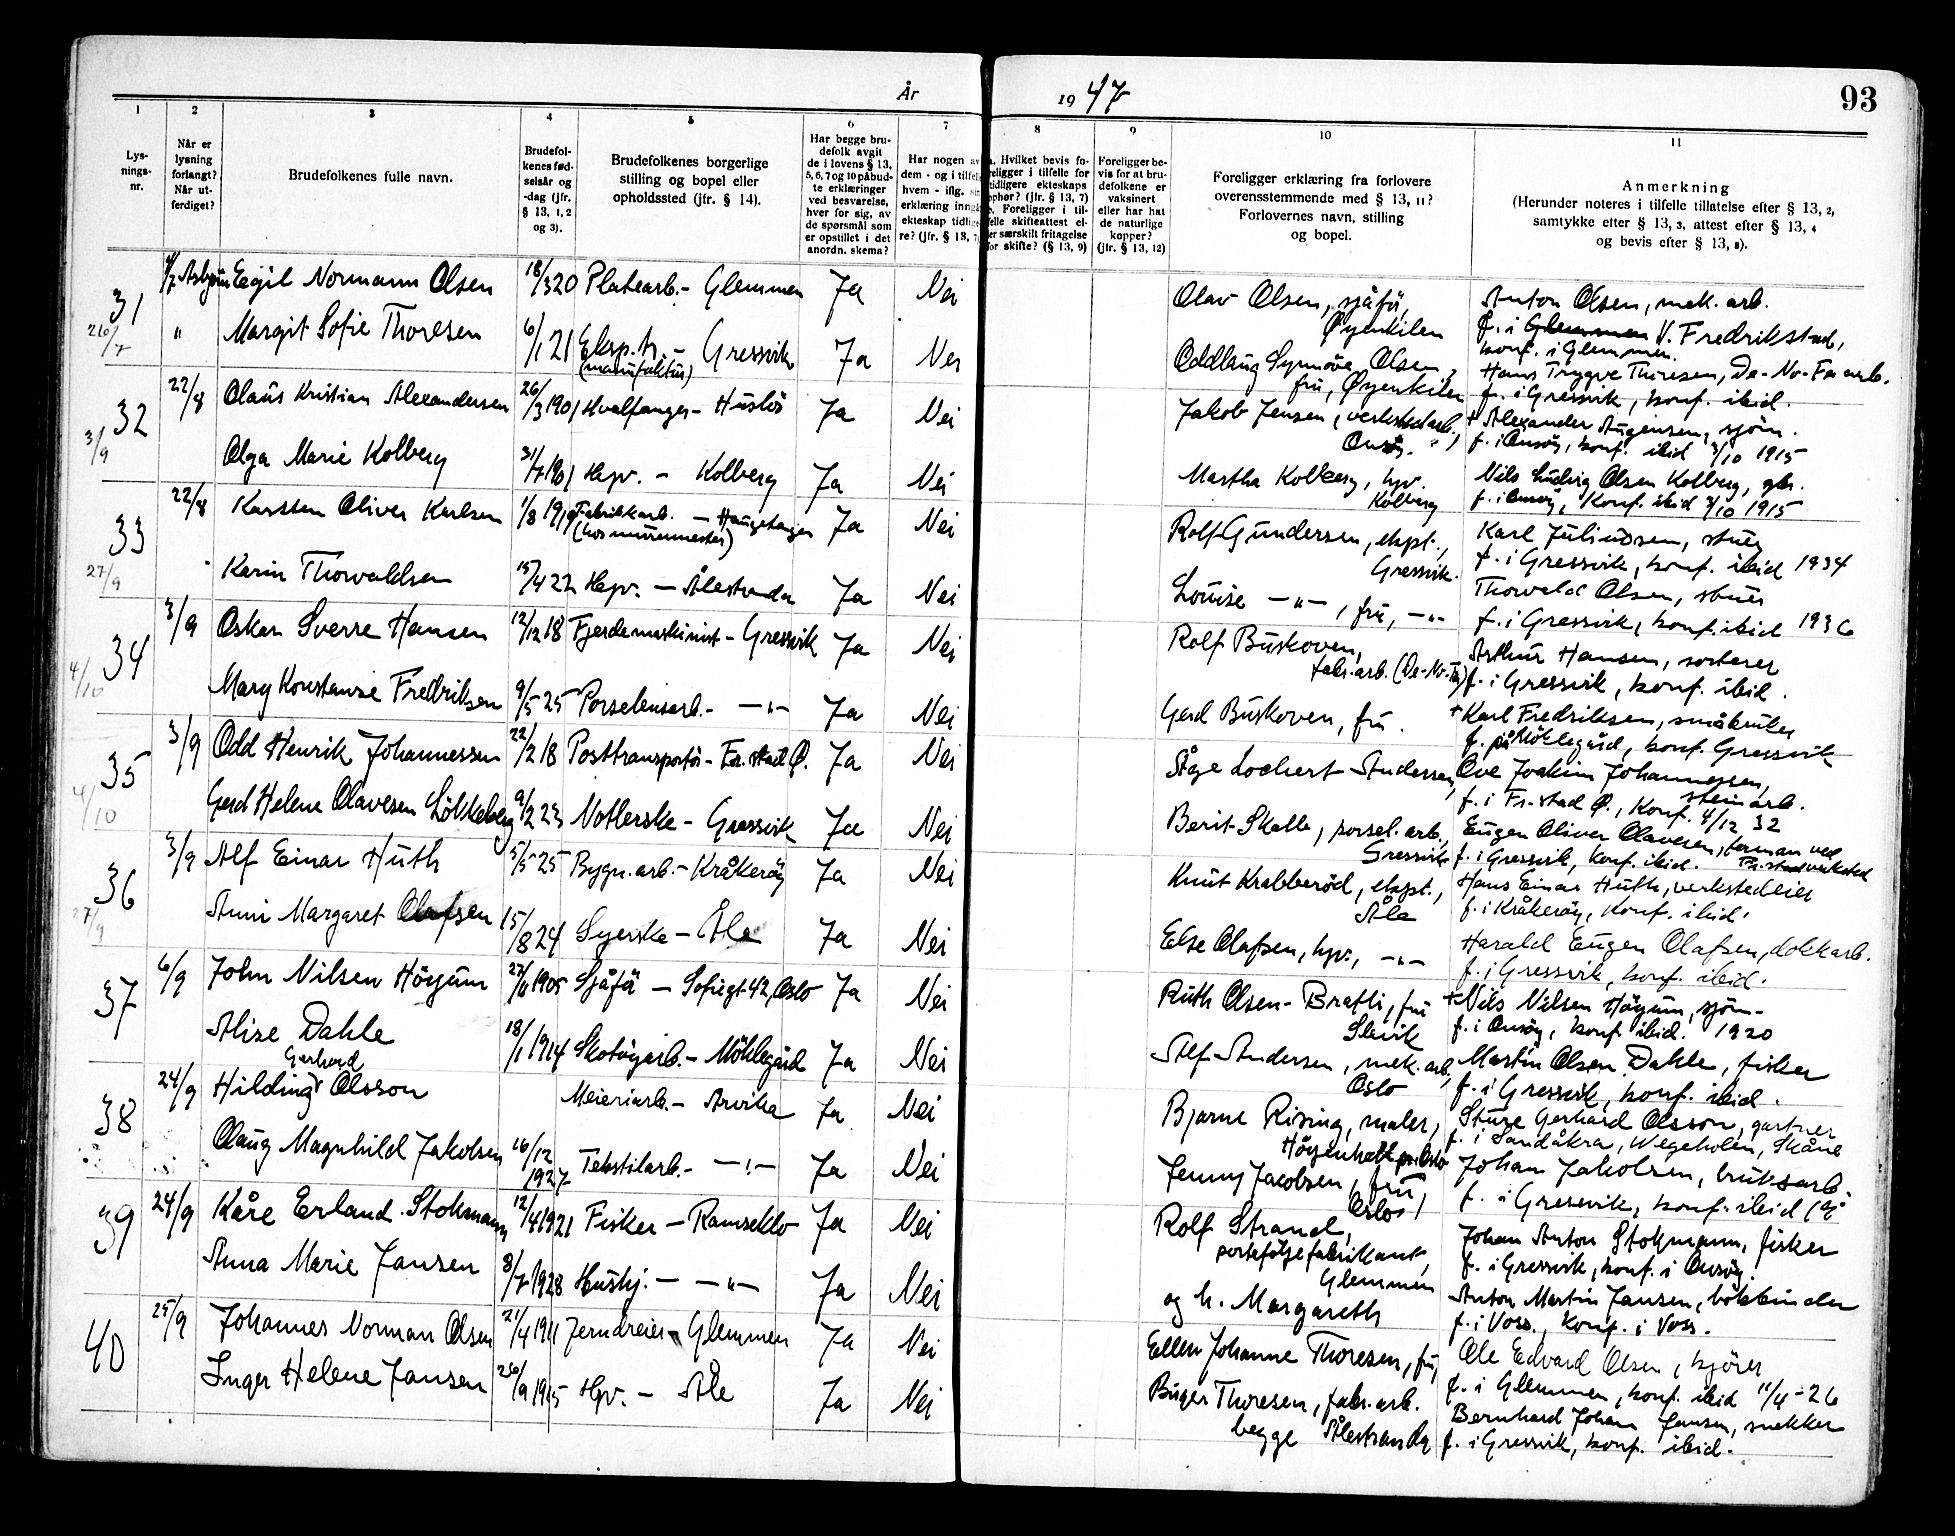 År 1947
93
1 2 3 4 5 6 7 8 9 10 11
Lys-
nings-
nr.
Når er
lysning
forlangt?
Når ut-
ferdiget?
Brudefolkenes fulle navn.
Brudefol-
kenes fød-
selsår og
-dag (jfr.
§ 13, 1, 2
og 3).
Brudefolkenes borgerlige
stilling og bopel eller
opholdssted (jfr. § 14).
Har begge bru-
defolk avgit
de i lovens § 13,
5, 6, 7 og 10 påbud-
te erklæringer
ved besvarelse,
hver for sig, av
de spørsmål som
er opstillet i det
anordn. skema?
Har nogen av
dem - og i tilfell
hvem - iflg. sin
erklæring inngå
ekteskap tidlige
re? (jfr. § 13, 7)
a. Hvilket bevis fo-
religger i tilfelle for
tidligere ekteskaps
ophør? (jfr. § 13, 7)
Foreligger i til-
felle skifteattest el-
ler særskilt fritagelse
for skifte? (§ 13, 9)
Foreligger be-
vis for at bru-
defolkene er
vaksinert
eller har hat
de naturlige
kopper?
(jfr. § 13, 12)
Foreligger erklæring fra forlovere
overensstemmende med § 13, 11?
Forlovernes navn, stilling
og bopel.
Anmerkning
(Herunder noteres i tilfelle tillatelse efter § 13, 2,
samtykke etter § 13, 3, attest efter § 13, 4
og bevis efter § 13, 8).
31 Asbjørn Eigil Normann Olsen 18/3 20 Platearb. - Glemmen Ja Nei Olav Olsen, sjåfør, Øyenkilen Anton Olsen, mek. arb.
f. i Glemmen V. Fredrikstad, konf. i Glemmen.
26/7 " Margit Sofie Thoresen 6/1 21 Eksp.tr. - Gressvik (manufaktur) Ja Nei Oddlaug Synnøve Olsen, fru, Øyenkilen Hans Trygve Thoresen, De-No-Fa arb.
f. i Gressvik, konf. ibid.
32 22/8 Claus Kristian Alexandersen 26/3 1901 Hvalfanger - Huslös Ja Nei Jakob Jensen, verkstedarb., Onsöy. + Alexander Augensen, sjøm.
f. i Onsöy, konf. ibid 3/10 1915
3/9 Olga Marie Kolberg 31/7 1901 Hpv. - Kolberg Ja Nei Martha Kolberg, hpv. Kolberg Nils Ludvig Olsen Kolberg, gbr.
f. i Onsöy, konf. ibid 3/10 1915
33 22/8 Karsten Oliver Karlsen 1/8 1919 Fabrikkarb. - Haugetangen (hos murermester) Ja Nei Rolf Gundersen, ekspt., Gressvik. Karl Juliussen, stuer
f. i Gressvik, konf. ibid 1934
27/9 Karin Thorvaldsen 15/4 22 Hpv. - Ålestranda Ja Nei Louise - " -, fru, - " - Thorvald Olsen, stuer
f. i Gressvik, konf. ibid 1936
34 3/9 Oskar Sverre Hansen 12/12 18 Fjerdemaskinist - Gressvik Ja Nei Rolf Buskoven, fabr.arb. (De-No-Fa) Arthur Hansen, sorterer
f. i Gressvik, konf. ibid.
4/10 Mary Konstanse Fredriksen 9/5 25 Porselensarb. - " - Ja Nei Gerd Buskoven, fru. + Karl Fredriksen, småbruker
f. på Möklegård, konf. Gressvik
35 3/9 Odd Henrik Johannessen 22/2 18 Posttransportör - Fr.stad Ö. Ja Nei Åge Lochert Andersen, Ove Joakim Johannessen, steinarb.
f. i Fr.stad Ö., Konf. 4/12 32
4/10 Gerd Helene Olavesen Lökkeberg 9/2 23 Notlerske - Gressvik Ja Nei Berit Skolle, porsel.arb., Gressvik Eugen Oliver Olavesen, forman ved
f. i Gressvik, konf. ibid.
36 3/9 Alf Einar Huth 5/5 25 Bygn.arb. - Kråkeröy Ja Nei Knut Krabberöd, ekspt., Åle Hans Einar Huth, verkstedeier
f. i Kråkeröy, konf. ibid.
27/9 Anni Margaret Olafsen 15/8 24 Syerske - Åle Ja Nei Else Olafsen, hpv., - " - Harald Eugen Olafsen, dokkarb.
f. i Gressvik, konf. ibid.
37 6/9 John Nilsen Höyum 27/6 1905 Sjåför - Sofiegt 42, Oslo Ja Nei Ruth Olsen-Bratli, fru Slevik + Nils Nilsen Höyum, sjøm.
f. i Onsöy, konf. ibid. 1920
Alise Dahle 18/1 1914 Skotöyarb. - Möklegård Ja Nei Alf Andersen, mek. arb, Oslo Martin Olsen Dahle, fisker
f. i Gressvik, konf. ibid.
38 24/9 Hilding Gerhard Olsson Meieriarb. - Arvika Ja Nei Bjarne Rising, maler, Höyenhall pr. Oslo Sture Gerhard Olsson, gartner
f. i Sandåkra, Skåne
Olaug Magnhild Jakobsen 16/12 1927 Tekstilarb. - " - Ja Nei Jenny Jacobsen, fru, Oslo Johan Jakobsen, bruksarb.
f. i Gressvik, konf. ibid
39 24/9 Kåre Erland Stokmann 12/4 1921 Fisker - Ramseklo Ja Nei Rolf Strand, porteføljefabrikant, Glemmen Johan Anton Stokmann, fisker
f. i Gressvik, konf. i Onsöy.
Anna Marie Jansen 8/7 1928 Hushj. - " - Ja Nei og h. Margareth Anton Martin Jansen, bokbinder
f. i Voss, konf. i Voss.
40 25/9 Johannes Norman Olsen 21/4 1911 Jerndreier - Glemmen Ja Nei Ellen Johanne Thoresen, fru, Ole Edvard Olsen, kjörer
f. i Glemmen, konf. ibid 11/4-26
Inger Helene Jansen 26/9 1915 Hpv. - Åle Ja Nei Birger Thoresen, fabr.arb. begge Ålestranda Bernhard Johan Jansen, snekker
f. i Gressvik, konf. ibid.